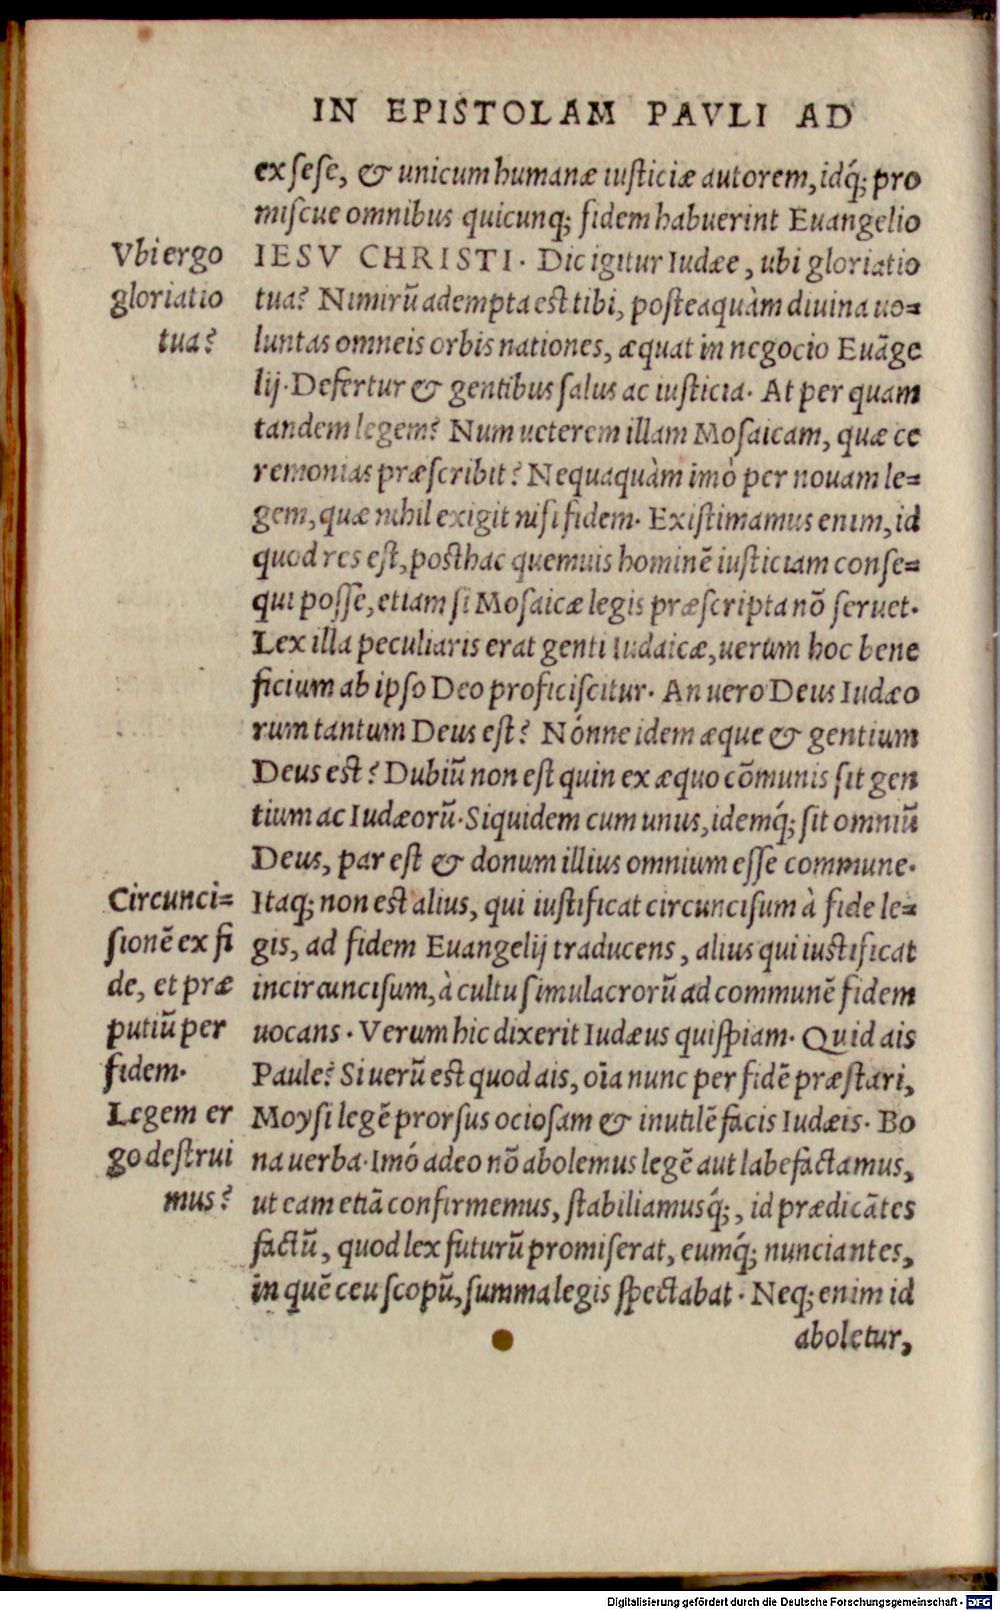 IN EPISTOLAM PAVLI AD
ex sese, & unicum humanæ iusticiæ autorem, idq́; pro
miscue omnibus quicunq; fidem habuerint Euangelio
Vbi ergo
gloriatio
tua?
IESV CHRISTI. Dic igitur Iudæe, ubi gloriatio
tua? Nimirū adempta est tibi, posteaquàm diuina uo=
luntas omneis orbis nationes, æquat in negocio Euāge
lij. Defertur & gentibus salus ac iusticia. At per quam
tandem legem? Num ueterem illam Mosaicam, quæ ce
remonias præscribit? Nequaquàm imò per nouam le=
gem, quæ nihil exigit nisi fidem. Existimamus enim, id
quod res est, posthac quemuis hominē iusticiam conse=
qui posse, etiam si Mosaicæ legis præscripta nō seruet.
Lex illa peculiaris erat genti Iudaicæ, uerum hoc bene
ficium ab ipso Deo proficiscitur. An uero Deus Iudæo
rum tantum Deus est? Nónne idem æque & gentium
Deus est? Dubiū non est quin ex æquo cōmunis sit gen
tium ac Iudæorū. Siquidem cum unus, idemq́; sit omniū
Deus, par est & donum illius omnium esse commune.
Circunci=
sionē ex fi
de, et præ
putiū per
fidem.
Itaq; non est alius, qui iustificat circuncisum à fide le=
gis, ad fidem Euangelij traducens, alius qui iustificat
incircuncisum, à cultu simulacrorū ad communē fidem
uocans. Verum hic dixerit Iudæus quispiam. Quid ais
Paule? Si uerū est quod ais, oīa nunc per fidē præstari,
Legem er
go destrui
mus?
Moysi legē prorsus ociosam & inutilē facis Iudæis. Bo
na uerba. Imó adeo nō abolemus legē aut labefactamus,
ut eam etiā confirmemus, stabiliamusq́;, id prædicātes
factū, quod lex futurū promiserat, eumq́; nunciantes,
in quē ceu scopū, summa legis spectabat. Neq; enim id
aboletur,
Digitalisierung gefördert durch die Deutsche Forschungsgemeinschaft - DFG